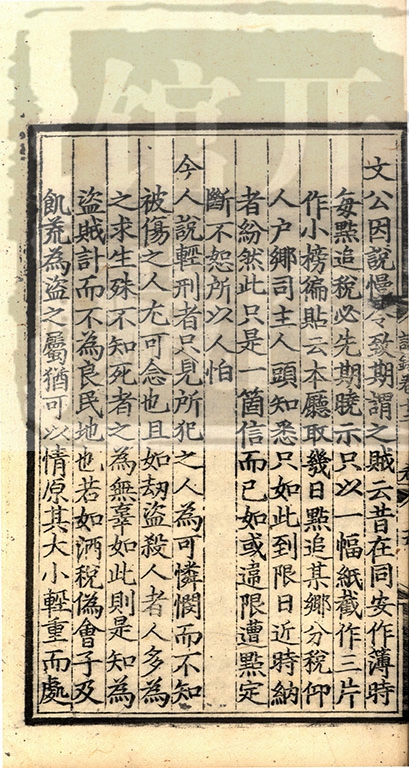 文公因說慢令致期謂之賊云昔在同安作薄時
每點追稅必先期曉示只以一幅紙截作三片
作小榜徧貼云本廳取幾日點追某鄉分稅仰
人户鄉司主人頭知悉只如此到限日近時納
者紛然此只是一箇信而已如或違限遭點定
斷不恕所以人怕
今人說輕刑者只見所犯之人為可憐憫而不知
被傷之人尤可念也且如刼盗殺人者人多為
之求生殊不知死者之為無辜如此則是知為
盗賊計而不為良民地也若如酒稅偽會子及
飢荒為盗之屬猶可以情原其大小輕重而處